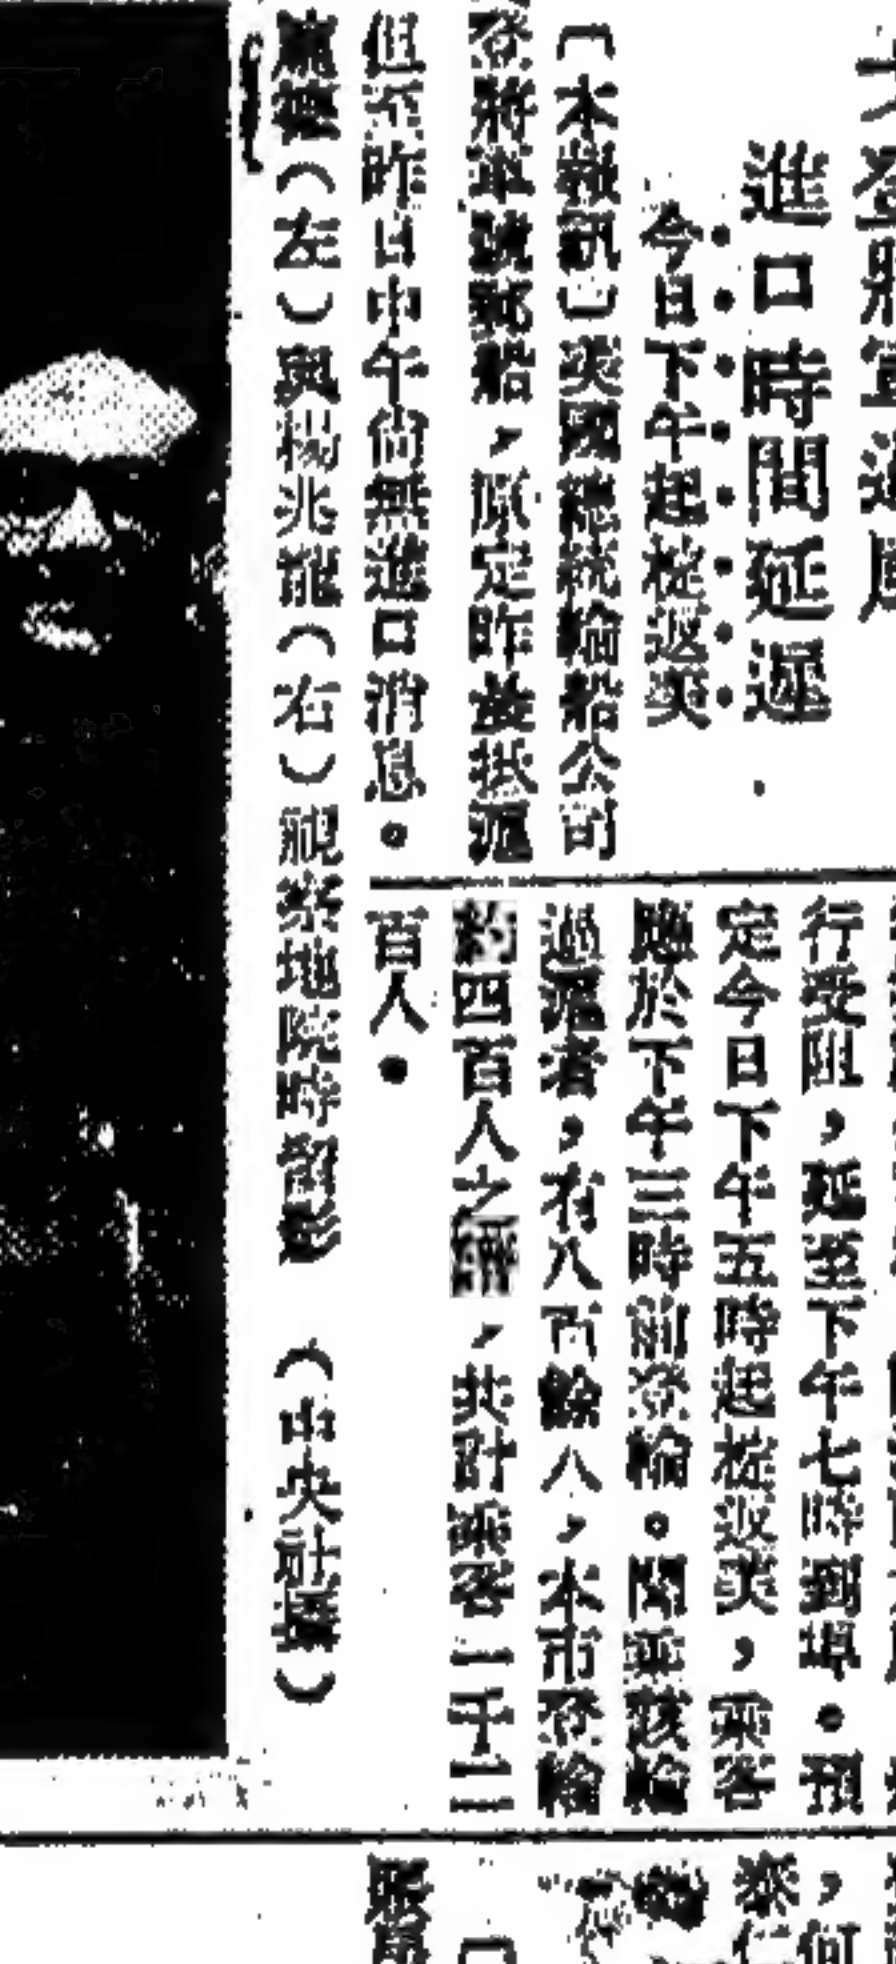 進口時間延遲
今日下午起椗返美
〔本報訊〕美國總統輪船公司
登將軍號郵船，原定昨晨抵滬
但至昨日中午尚無進口消息。
行受阻，延至下午七時到埠。預
定今日下午五時起椗返美，乘客
應於下午三時前登輪。聞乘該輪
過滬者，有八百餘人，本市登輪
約四百人之譜，共計乘客一千二
百人。
龐德（左）與楊兆龍（右）視察地院時留影　（中央社攝）